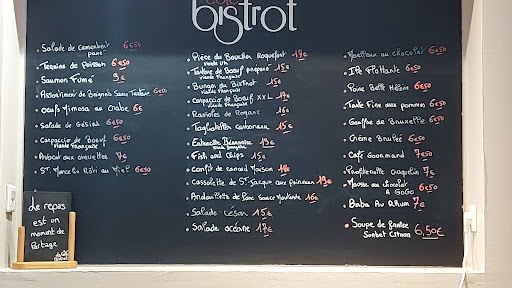 côté
bistrot
Salade de Camembert 6€50
pané
Terrine de Poisson 6€50
Saumon Fumé 9€
Assortiment de Beignets Sauce Tartare 6€50
oeufs Mimosa au Crabe 6€
Salade de Gésier 6€50
Carpaccio de Boeuf 6€50
viande Française
Avocat aux crevettes 7€
St Marcellin Rôti au Miel 6€50
Le repas
est un
moment de
Partage
Pièce du Boucher Roquefort 17€
Tartare de Boeuf préparé 15€
viande Française
Burger du Bistrot 15€
viande Française
Carpaccio de Boeuf XXL 17€
viande Française
Ravioles de Romans 16€
Tagliatelles carbonara 15€
Entrecôte Béarnaise 19€
Fish and Chips 15€
Confit de canard Maison 18€
Cassolette de St Jacque aux Poireaux 19€
Andouillette de Porc Sauce Moutarde 16€
Salade César 15€
Salade océane 17€
Moelleux au chocolat 6€50
Ile Flottante 6€50
Poire Belle Hélène 6€50
Tarte Fine aux pommes 6€50
Gauffre de Bruxelle 6€50
Crème Brulée 6€50
Café Gourmand 7€50
Profiterole Craquelin 7€50
Mousse au chocolat 7€50
A GOGO
Baba Au Rhum 7€
Soupe de fraise 6,50€
Sorbet Citron